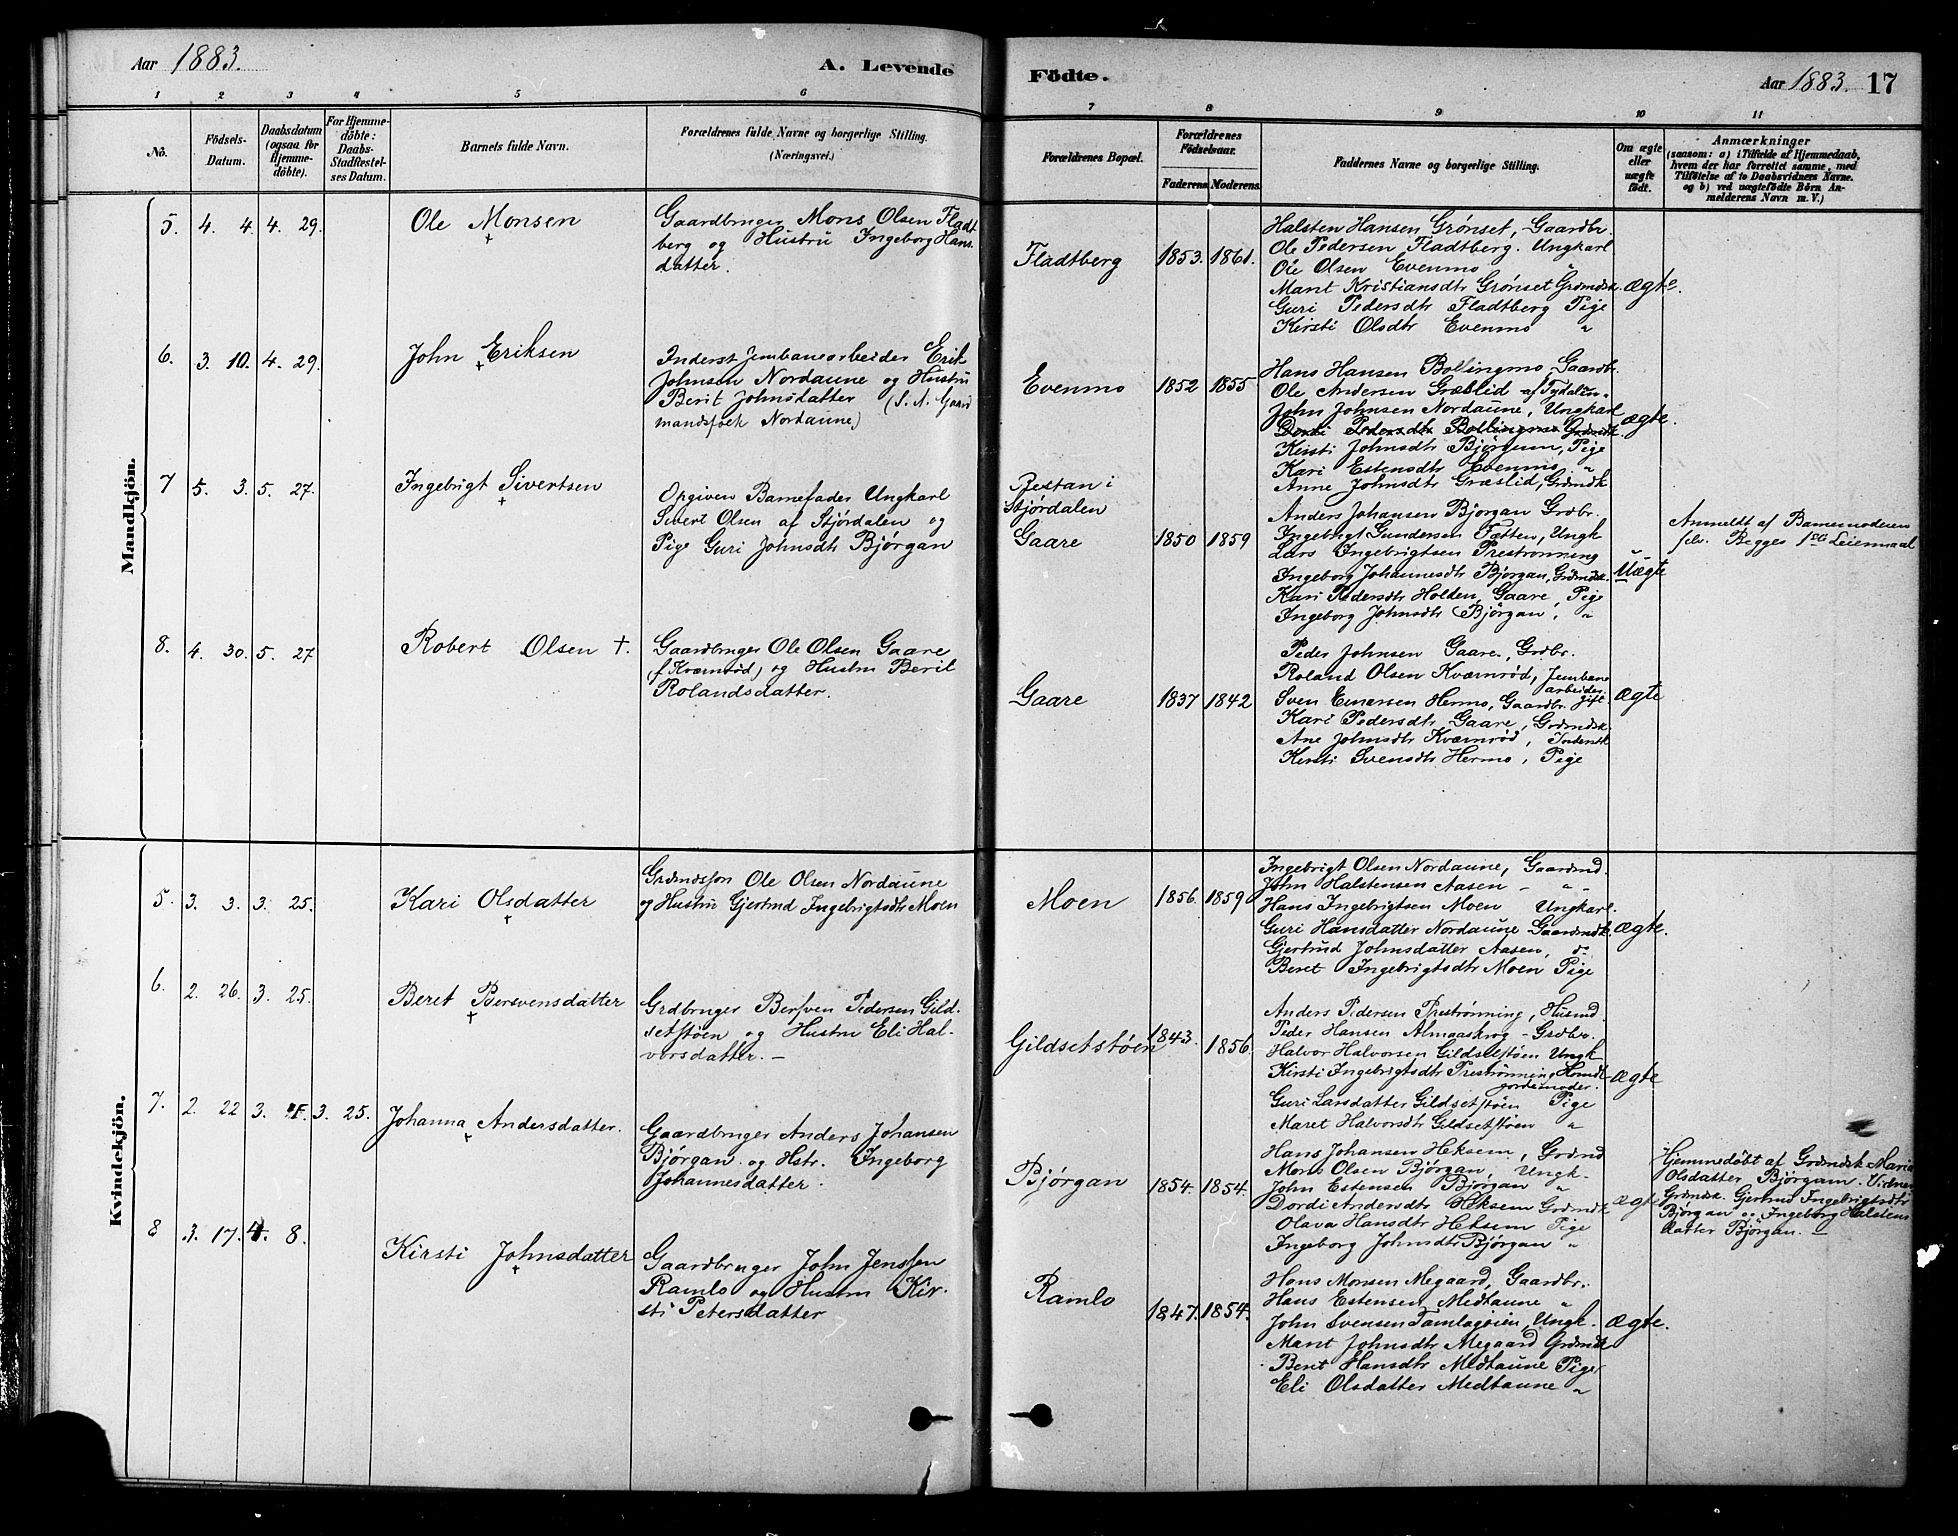 Aar 1883.
A. Levende
Födte.
Aar 1883. 17
1 2 3 4 5 6
7 8 9 10 11
No.
Födsels-
Datum.
Daabsdatum
(ogsaa for
Hjemme-
döbte).
For Hjemme-
döbte:
Daabs-
Stadfestel-
ses Datum.
Barnets fulde Navn.
Forældrenes fulde Navne og borgerlige Stilling.
(Næringsvei.)
Forældrenes Bopæl.
Forældrenes
Födselsaar.
Faderens. Moderens.
Faddernes Navne og borgerlige Stilling.
Om ægte
eller
uægte
födt.
Anmærkninger
(saasom: a) i Tilfælde af Hjemmedaab,
hvem der har forrettet samme, med
Tilföielse af to Daabsvidners Navne.
og b) ved uægtefödte Börn An-
melderens Navn m. V.)
Mandkjön.
5. 4. 4. 4. 29.
Ole Monsen
Gaardbruger Mons Olsen Fladt-
berg og Hustru Ingeborg Hans-
datter.
Fladtberg 1853. 1861.
Halsten Hansen Grønset, Gaardbr.
Ole Pedersen Fladtberg. Ungkarl
Ole Olsen Evenmo "
Marit Kristiansdtr Grønset Grdmdsk.
Guri Pedersdtr Fladtberg Pige
Kirsti Olsdtr Evenmo "
Ægte.
6. 3. 10. 4. 29.
John Eriksen
Inderst Jernbanearbeider Erik
Johnsen Nordaune og Hustru
Berit Johnsdatter (S. N. Gaard
mandsfolk Nordaune)
Evenmo 1852 1855
Hans Hansen Bollingmo Gaardbr.
Ole Andersen Græslid af Tydalen.
John Johnsen Nordaune, Ungkarl
Dordi Pedersdtr Bollingmo Grdmdsk.
Kirsti Johnsdtr Bjørgum, Pige
Kari Estensdtr Evenmo "
Anne Johnsdtr Græslid, Grdmdsk
Ægte.
7 5. 3. 5. 27.
Ingebrigt Sivertsen
Opgiven Barnefader Ungkarl
Sivert Olsen af Stjørdalen og
Pige Guri Johnsdtr Bjørgan
Restan i
Stjørdalen
Gaare 1850 1859
Anders Johansen Bjørgan Grdbr.
Ingebrigt Gundersen Tætten, Ungk
Lars Ingebrigtsen Prestrønning
Ingeborg Johannesdtr Bjørgan, Grdmdsk.
Kari Pedersdtr Holden, Gaare, Pige
Ingeborg Johnsdtr Bjørgan, "
Uægte
Anmeldt af Barnemoderen
selv. Begges 1ste Leiermaal
8. 4. 30. 5. 27
Robert Olsen +.
Gaardbruger Ole Olsen Gaare
(f. Kværnrød) og Hustru Berit
Rolandsdatter.
Gaare 1837 1842
Peder Johnsen Gaare, Grdbr.
Roland Olsen Kværnrød, Jernbane
arbeider
Sven Einarsen Hermo, Gaardbr. gift.
Kari Pedersdtr Gaare, Grdmdsk.
Ane Johnsdtr Kværnrød, Inderstk
Kirsti Svensdtr Hermo, Pige
Ægte
Kvindekjön.
5. 3. 3. 3. 25.
Kari Olsdatter
Grdmdssøn Ole Olsen Nordaune
og Hustru Gjertrud Ingebrigtsdtr Moen
Moen 1856. 1859
Ingebrigt Olsen Nordaune, Gaardmd.
John Halstensen Aasen - " -
Hans Ingebrigtsen Moen Ungkarl.
Guri Hansdatter Nordaune Gaardmdk
Gjertrud Johnsdatter Aasen, do
Beret Ingebrigtsdtr Moen Pige
Ægte.
6. 2. 26. 3. 25.
Beret Bersvensdatter
Grdbruger Berfven Pedersen Gild-
setstøen og Hustru Eli Hal-
vorsdatter. —
Gildsetstøen 1843. 1856.
Anders Pedersen Prestrønning, Husmd.
Peder Hansen Almaaskrog - Grdbr.
Halvor Halvorsen Gildsetstøen Ungk
Kirsti Ingebrigtsdtr Prestrønning Hsmdk
gordemoder.
Guri Larsdatter Gildsetstøen Pige
Maret Halvorsdtr Gildsetstøen "
Ægte
7. 2. 22 3. 4. 3. 25.
Johanna Andersdatter.
Gaardbruger Anders Johansen
Bjørgan og Hstr. Ingeborg
Johannesdatter.
Bjørgan 1854. 1854.
Hans Johansen Heksem, Grdmd
Mons Olsen Bjørgan, Ungk.
John Estensen Bjørgan "
Dordi Andersdtr Heksem Grdmdk
Olava Hansdtr Heksem Pige
Ingeborg Johnsdtr Bjørgan "
Ægte
Hjemmedøbt af Grdmdsk Maria
Olsdatter Bjørgan. Vidner
Grdmdsk. Gjertrud Ingebrigtsdtr
Bjørgan og Ingeborg Halstens
datter Bjørgan. —
8 3. 17. 4. 8.
Kirsti Johnsdatter
Gaardbruger John Jenssen
Ramlo og Hustru Kir-
sti Petersdatter
Ramlo 1847. 1854.
Hans Monsen Megaard, Gaardbr.
Hans Estensen Medtaune "
John Svensen Tamlagøien, Ungk.
Marit Johnsdtr Megaard Grdmdk
Beret Hansdtr Medtaune Pige
Eli Olsdatter Medtaune "
Ægte.